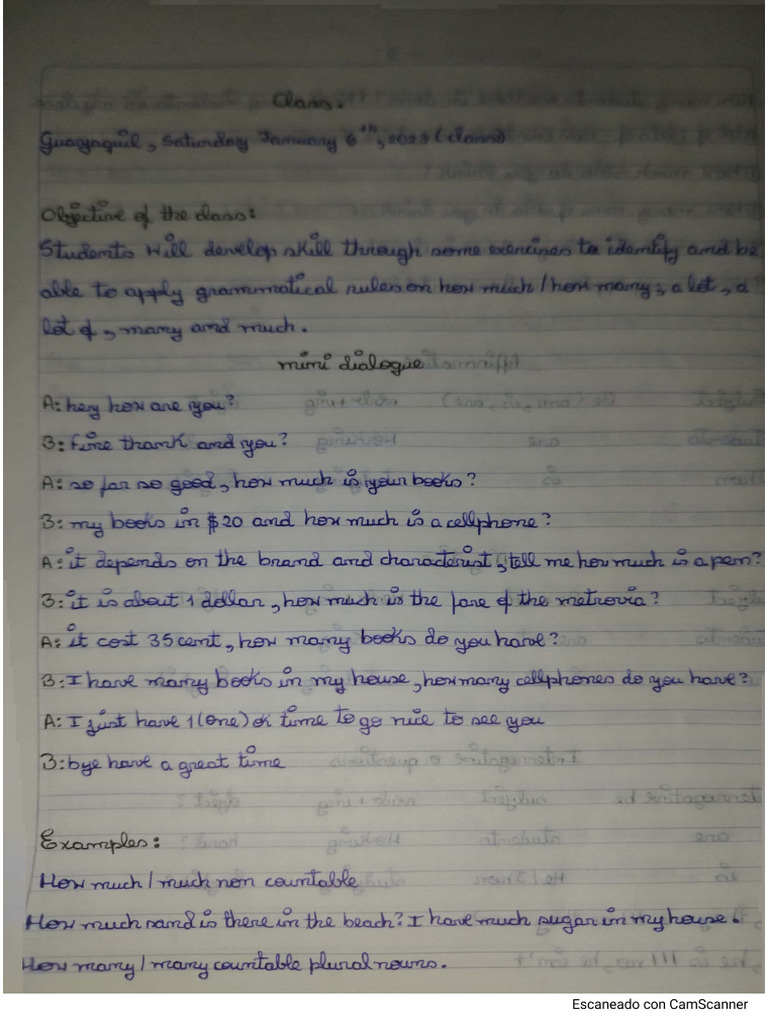 Class.
Guayaquil, Saturday January 6th, 2023 (class)
Objective of the class:
Students will develop skill through some exercises to identify and be
able to apply grammatical rules on how much / how many, a lot, a
lot of, many and much.
mini dialogue
A: hey how are you?
B: Fine thank and you?
A: so far so good, how much is your books?
B: my books in $20 and how much is a cellphone?
A: it depends on the brand and characterist, tell me how much is a pen?
B: it is about 1 dollar, how much is the fare of the metrovia?
A: it cost 35 cent, how many books do you have?
B: I have many books in my house, how many cellphones do you have?
A: I just have 1 (one) ok time to go nice to see you
B: bye have a great time
Examples:
How much / much non countable
How much sand is there in the beach? I have much sugar in my house.
How many / many countable plural nouns.
Escaneado con CamScanner